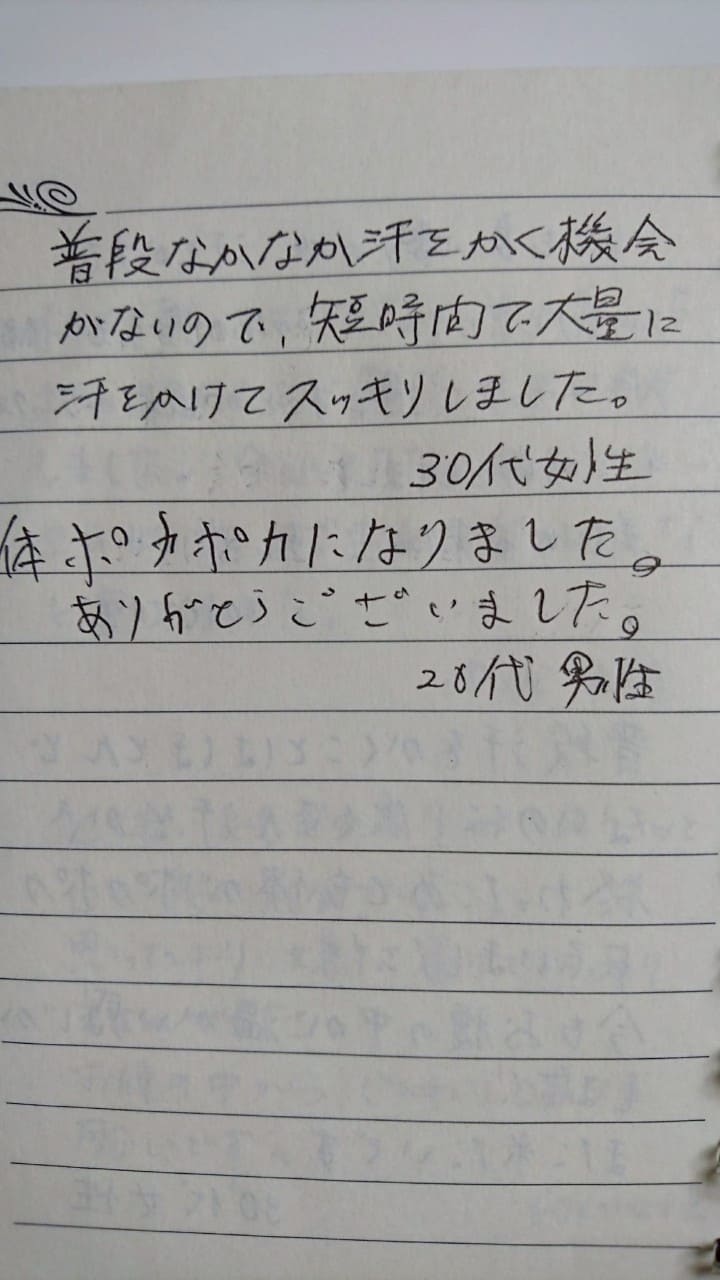 普段なかなか汗をかく機会
がないので、短時間で大量に
汗をかけてスッキリしました。
30代女性
体ポカポカになりました。
ありがとうございました。
20代 男性